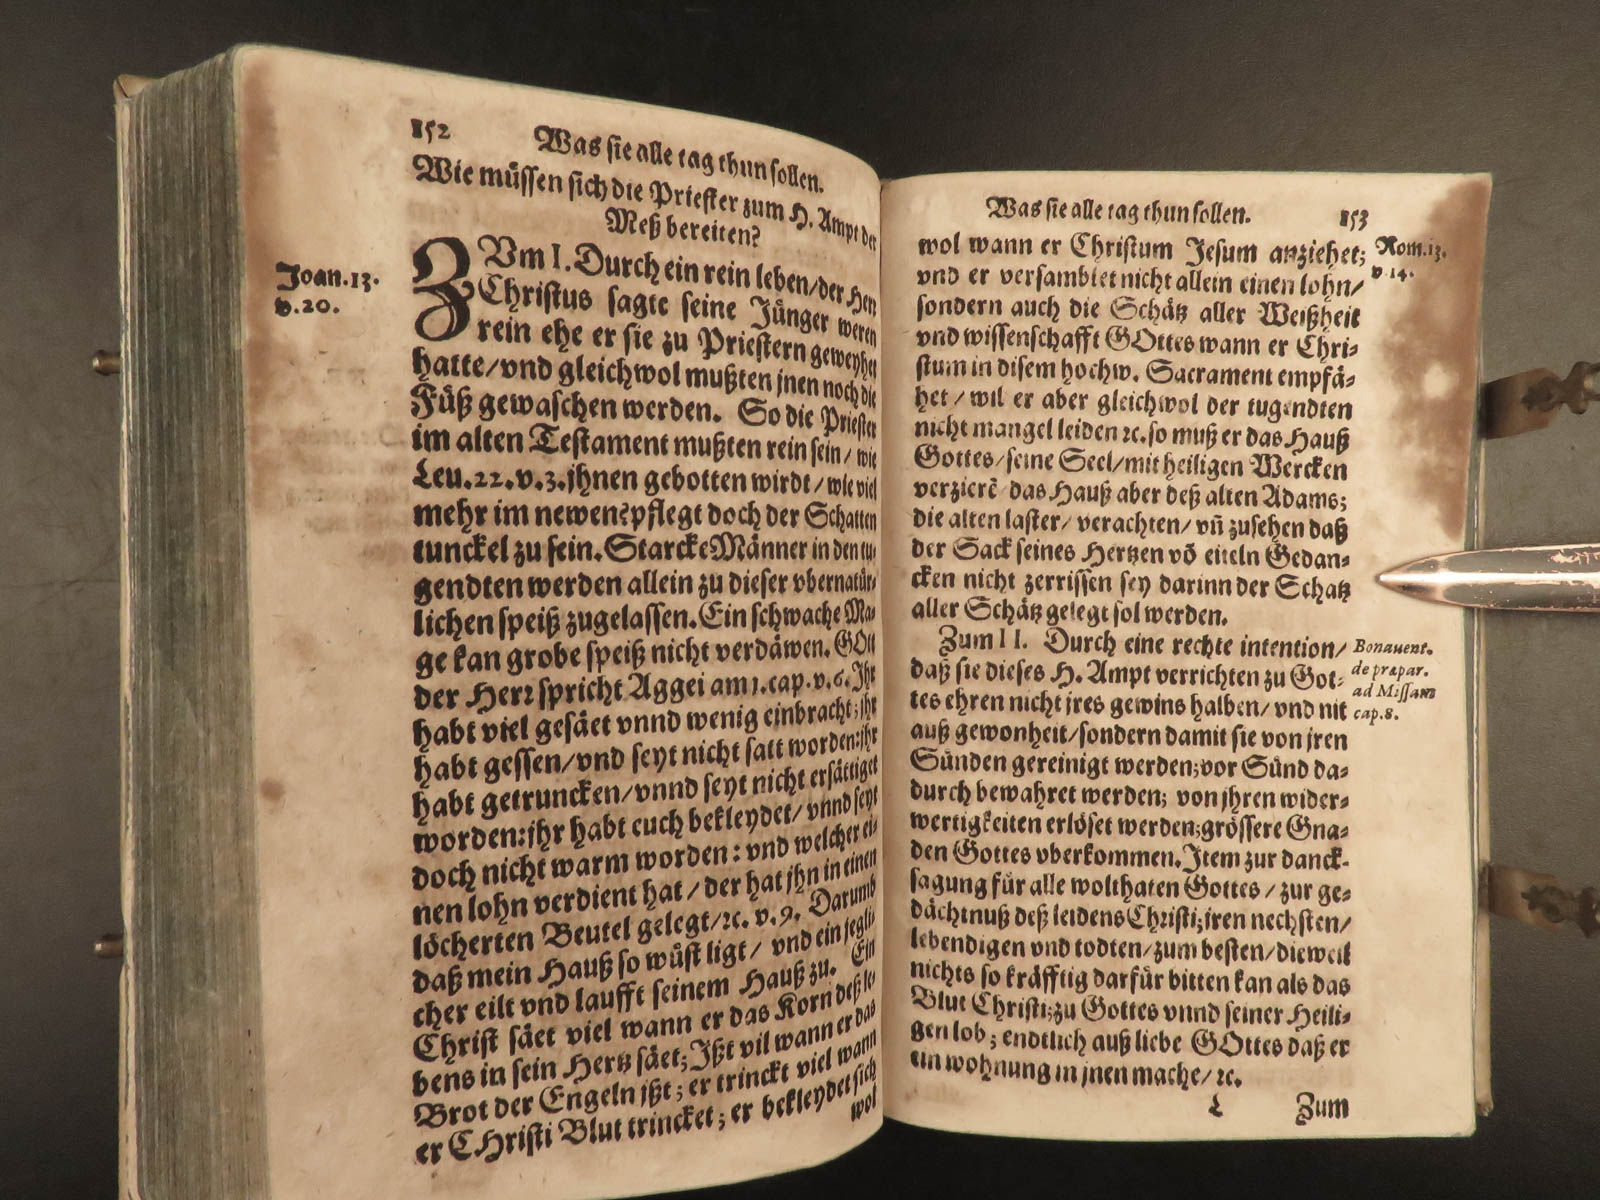 152 Was sie alle tag thun sollen.
Wie müssen sich die Priester zum H. Ampt der
Meß bereiten?
Joan. 13.
v. 20.
ZUm I. Durch ein rein leben/ der Herr
Christus sagte seine Jünger weren
rein ehe er sie zu Priestern geweyhet
hatte/ vnd gleichwol mußten jnen noch die
Füß gewaschen werden. So die Priester
im alten Testament mußten rein sein/ wie
Leu. 22. v. 3. jhnen gebotten wirdt/ wie viel
mehr im newen? pflegt doch der Schatten
tunckel zu sein. Starcke Männer in den tu-
gendten werden allein zu dieser vbernatür-
lichen speiß zugelassen. Ein schwache Ma-
ge kan grobe speiß nicht verdäwen. GOtt
der Herr spricht Aggei am 1. cap. v. 6. Jhr
habt viel gesäet vnnd wenig einbracht; jhr
habt gessen/ vnd seyt nicht satt worden: jhr
habt getruncken/ vnnd seyt nicht ersättiget
worden: jhr habt euch bekleydet/ vnnd seyt
doch nicht warm worden: vnd welcher ei-
nen lohn verdient hat/ der hat jhn in einen
löcherten Beutel gelegt/ ꝛc. v. 9. Darumb
daß mein Hauß so wüst ligt/ vnd ein jegli-
cher eilt vnd laufft seinem Hauß zu. Ein
Christ säet viel wann er das Korn deß le-
bens in sein Hertz säet; Jßt vil wann er das
Brot der Engeln jßt; er trinckt viel wann
er CHristi Blut trincket; er bekleydet sich
wol
Was sie alle tag thun sollen. 153
wol wann er Christum Jesum anziehet;
Rom. 13.
v. 14.
vnd er versamblet nicht allein einen lohn/
sondern auch die Schätz aller Weißheit
vnd wissenschafft GOttes wann er Chri-
stum in disem hochw. Sacrament empfä-
het/ wil er aber gleichwol der tugendten
nicht mangel leiden ꝛc. so muß er das Hauß
Gottes/ seine Seel/ mit heiligen Wercken
verzierē das Hauß aber deß alten Adams;
die alten laster/ verachten/ vñ zusehen daß
der Sack seines Hertzen vō eiteln Gedan-
cken nicht zerrissen sey darinn der Schatz
aller Schätz gelegt sol werden.
Zum II. Durch eine rechte intention/
Bonauent.
de præpar.
ad Missam
cap. 8.
daß sie dieses H. Ampt verrichten zu Got-
tes ehren nicht jres gewins halben/ vnd nit
auß gewonheit/ sondern damit sie von jren
Sünden gereinigt werden; vor Sünd da-
durch bewahret werden; von jhren wider-
wertigkeiten erlöset werden; grössere Gna-
den Gottes vberkommen. Jtem zur danck-
sagung für alle wolthaten Gottes/ zur ge-
dächtnuß deß leidens Christi; jren nechsten/
lebendigen vnd todten/ zum besten/ dieweil
nichts so kräfftig darfür bitten kan als das
Blut Christi; zu Gottes vnnd seiner Heili-
gen lob; endtlich auß liebe GOttes daß er
ein wohnung in jnen mache/ ꝛc.
L Zum